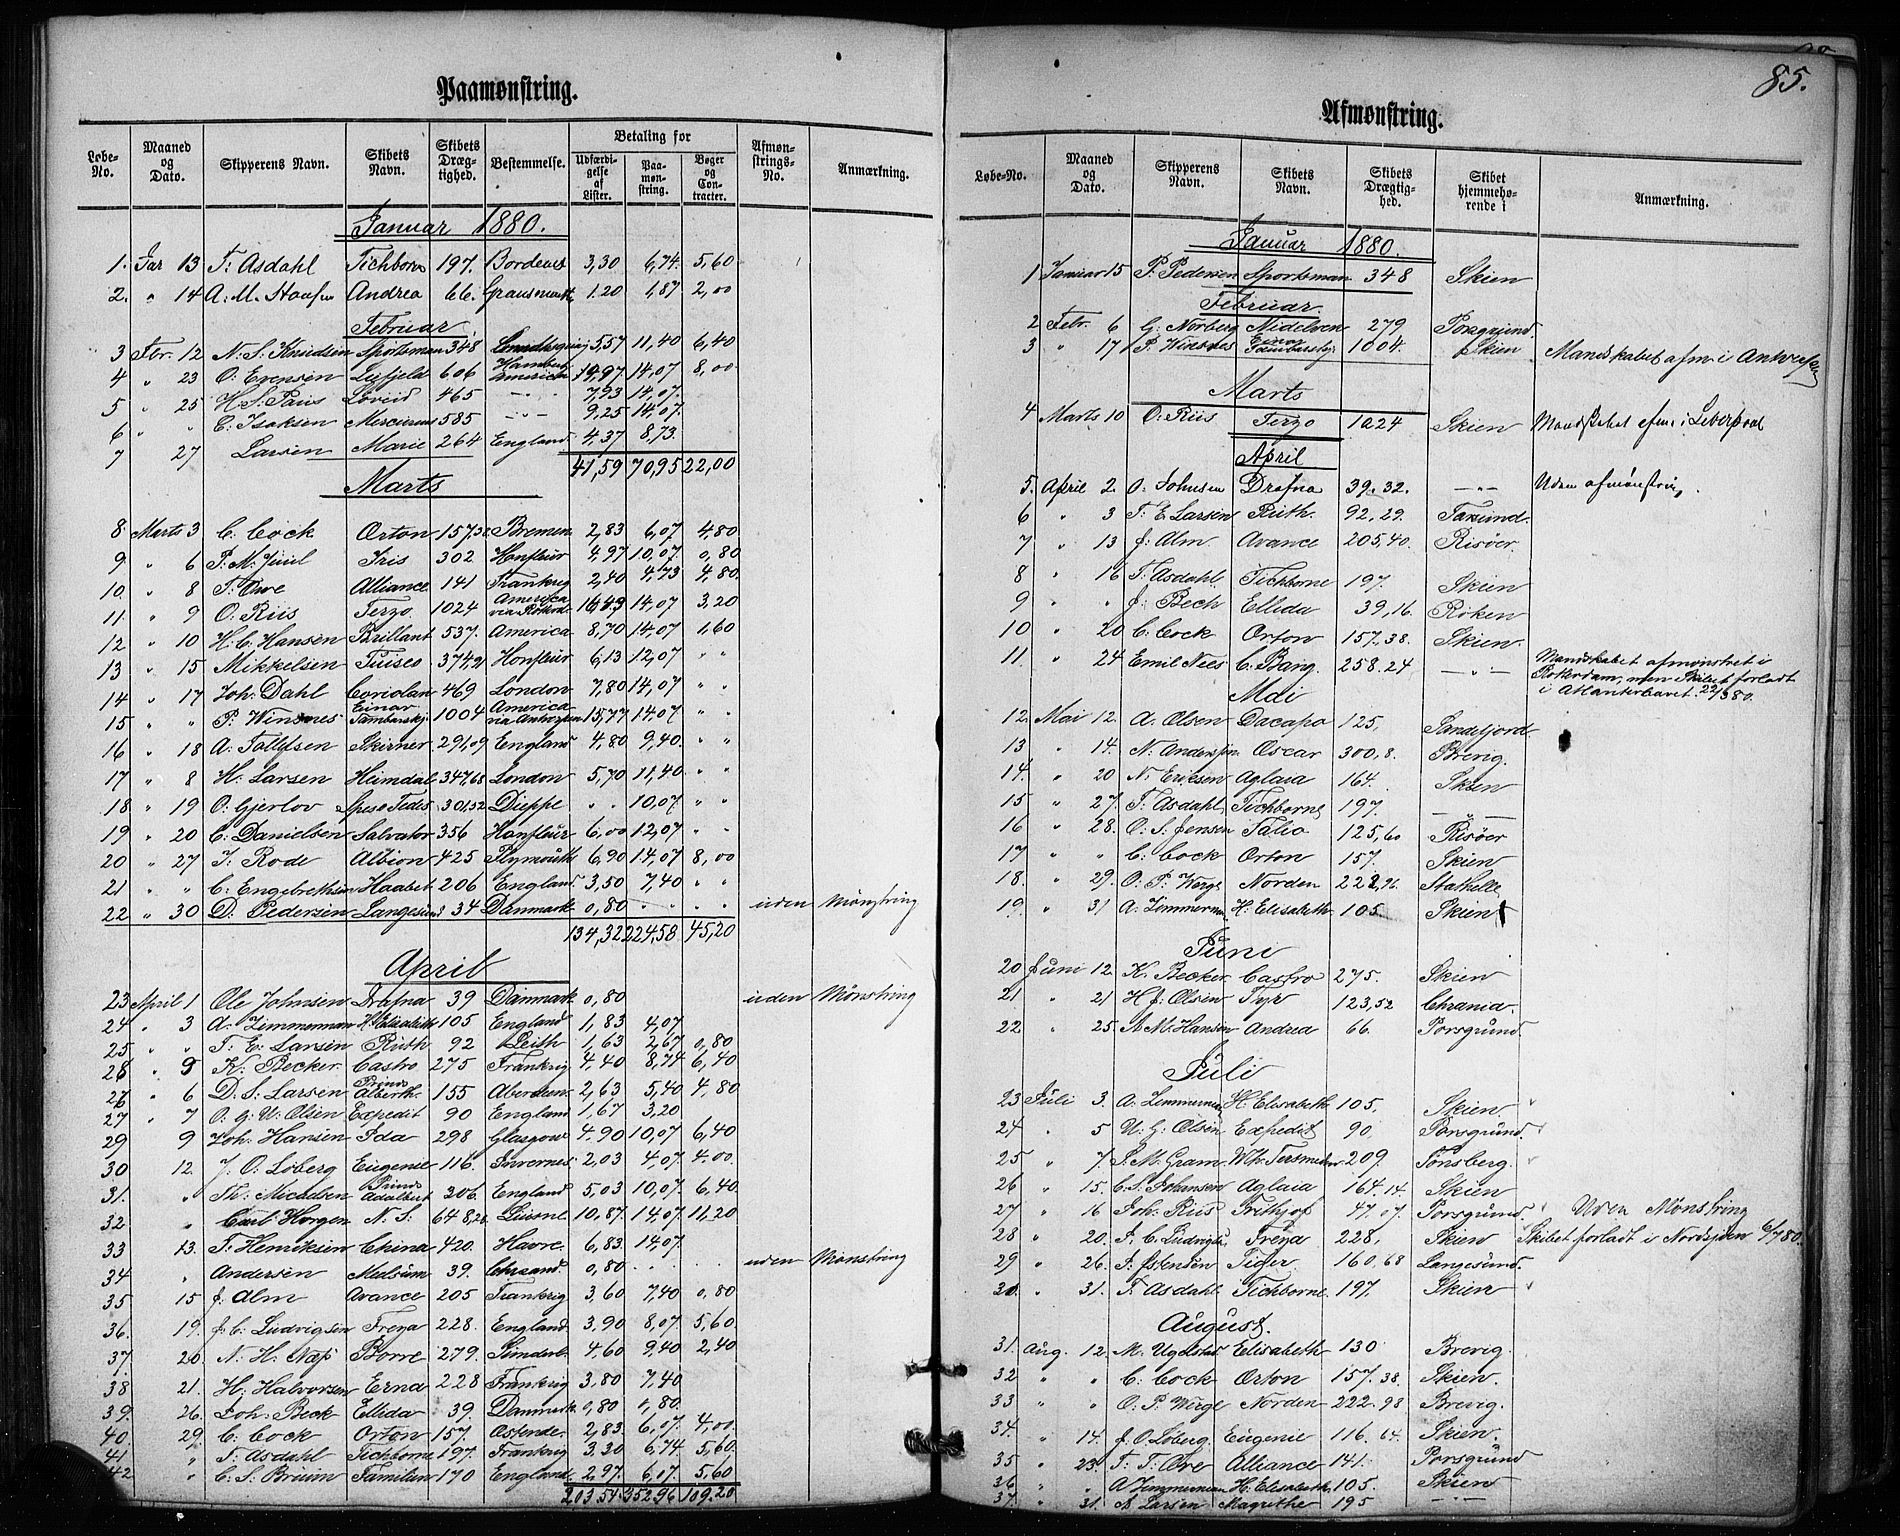 85.
Paamønstring.
Løbe-No. Maaned og Dato. Skipperens Navn. Skibets Navn. Skibets Drægtighed. Bestemmelse. Betaling for Udfærdigelse af Lister. Paamønstring. Bøger og Contracter. Afmønstrings-No. Anmærkning.
Januar 1880.
1. Jar 13 T. Asdahl Tichborne 197. 3,30 6,74. 5,60
2. " 14 A. M. Andrea 66. 1.20 1,87 2,00
Februar
3 Febr. 12 N. S. Sportsman 348 5,57 11,40 6,40
4 " 23 O. Evensen Lifjeld 606 Hamburg America 14,97 14,07 8,00
5 " 25 H. S. Paus Løveid 465 -"- 7,93 14,07.
6 " " C. Isaksen Mercurius 585 -"- 9,25 14,07.
7 27 Larsen Marie 264 England 4,37 8,73.
47,59 70,95 22,00
Marts
8 Marts 3 C. Cock Orton 157,38 Bremen 2,83 6,07 4,80
9 " 6 P. M. Juul Iris 302 Honfleur 4,97 10,07 0,80
10. " 8 T. Owe Alliance 141 Frankrig 2,40 4,73 4,80.
11. " 9 O. Riis Terzo 1024 America 14,07 3,20
12 " 10 H. C. Hansen Brillant 537. America 8,70 14,07 1,60
13 " 15 Mikkelsen Tuisco 374,21 Honfleur 6,13 12,07 " "
14 " 17 Joh. Dahl Coriolan 469 London 7,80 14,07 " "
15 " " P. Winsnes Einar Tambarskj. 1004 America via Antverpen 15,77 14,07 " "
16 " 18 A. Tollefsen Skirner 291,09 England 4,80 9,40. " "
17 " 8 H. Larsen Heimdal 347,68 London 5,70 11,40. " "
18 " 19 O. Gjerløv Spes & Fides 301,52 Dieppe " " 10,07 " "
19 " 20 C. Danielsen Salvator 356 Honfleur 6,00 12,07 " "
20 " 27 J. Rode Albion 425 Plymouth 6,90 14,07 8,00
21 " " C. Engebrethsen Haabet 206 England 3,50 7,40 " "
22 " 30 D. Pedersen Langesund 34 Danmark 0,80 " " uden Mønstring
134,32 224,58 45,20
April
23 April 1 Ole Johnsen Drafna 39 Danmark 0,80 uden Mønstring
24 " 3 A. Zimmerman H. Elisabeth 105 England 1,83 4,07
25 " " T. E. Larsen Ruth 92 Leith 1,63 2,67 0,80
26 " 5 K. Becker Castro 275 Frankrig 4,40 8,74 6,40
27 " 6 D. S. Larsen Prinds Alberth. 155 Aberdeen 2,63 5,40 4,80
27 " 7 O. g. U. Olsen Expedit 90 England 1,67 3,20
29 9 Joh. Hansen Ida 298 Glasgow 4,90 10,07 6,40
30 12. J. O. Løberg Eugenie 116. Invernes. 2,03 4,07. 4,00.
31. " Th. Michelsen Prinds Adalbert 206. England 5,03 10,07. 6,40.
32 " Carl Horgen N. S. 648,28 10,87. 14,07. 11,20
33 13. T. Henriksen China 420. Havre. 6,83. 14,07.
34 " Andersen 39. Chrsand. 0,80. uden Mønstring
35 15 J. Alm Avance 205 Frankrig 3,60 7,40 0,80
36. 19. J. C. Ludvigsen Freya 228. England 3,90 8,07 5,60
37 20. N. H. Næss Borre 279. 4,60 9,40 2,40
38 21. H. Halvorsen Erna 228 Frankrig 3,80 7,40
39. 26. Joh. Beck Ellida 39. Danmark 0,80 0,80.
40 29 C. Cock Orton 157. Ostende. 2,83. 6,07. 4,00.
41 " T. Asdahl Tichborne 197. Frankrig 3,30 6,74 5,60.
42 " C. S. Bruun Familien 170 England 2,97. 6,07. 5,60
203.54 352.96 109.20
Afmønstring.
Løbe-No. Maaned og Dato. Skipperens Navn. Skibets Navn. Skibets Drægtighed. Skibet hjemmehørende i Anmærkning.
Januar 1880.
1 Januar 15 P. Pedersen Sportsman 348 Skien
Februar
2 Febr. 6 G. Norberg Midelven 279 Porsgrund.
3 " 17 P. Winsnes Einar Tambarskj. 1004. Skien Mandskabet afm. i Antwerpen
Marts
4 Marts 10 O. Riis Terzo 1024 Skien Mandskabet afm. i Liverpool
April
5. April 2. O. Johnsen Drafna 39. 32. -"- Uden afmønstring.
6 " 3 T. E. Larsen Ruth. 92, 29.
7 " 13 J. Alm Avance 205,40. Risöer.
8 " 16 T. Asdahl. Tichborne 197. Skien
9 " " J. Bech Ellida 39,16. Röken
10 " 20 C. Cock Orton 157,38. Skien.
11. " 24 Emil Nees C. Bang. 258.24 -"- Mandskabet afmønstret i Rotterdam, men Skibet forladt i Atlanterhavet. 22/3 80.
Mai
12. Mai 12. A. Olsen Dacapo 125, Sandefjord.
13 " 14. N. Andersen Oscar 300,8. Brevig.
14. " 20 N. Eriksen Aglaia 164. Skien
15 " 27. T. Asdahl Tichborne 197. -"-
16 " 28. O. S. Jensen Talia 125,60 Risöer
17 " " C. Cock Orton 157. Skien
18. " 29. O. P. Norden 222,96. Stathelle
19. " 31 A. Zimmerman H. Elisabeth 105. Skien
Juni
20 Juni 12. K. Becker Castro 275. Skien
21 " 21 H. J. Olsen Tyr 123,52 Chrania.
22 " 25. A. M. Hansen Andrea 66. Porsgrund.
Juli
23 Juli 3. A. Zimmerman H. Elisabeth 105. Skien.
24 " 5 U. G. Olsen Expedit 90. Porsgrund.
25 " 7. S. M. Gram Wh. 209. Tønsberg.
26 " 15. C. S. Johansen Aglaia 164.14. Skien
27 " 16 Joh. Riis Frithjof 47.07. Porsgrund. Uden Mønstring
28 " 20. J. C. Ludvigs. Freya 228, Skien Skibet forladt i Nordsjøen 6/7 80.
29 " 26. Tiger 160,68 Langesund.
30. " 31. T. Asdahl Tichborne. 197. Skien
August.
31. Aug. 12. M. Ugelstad Elisabeth 130 Brevig.
32 " " C. Cock Orton 157.38. Skien.
33 " " O. P. Norden 222.98 Brevig.
34. " 14. J. O. Løberg. Eugenie 116.64. Skien.
35 " 23. T. T. Øve Alliance 141. Porsgrund
36 " " A. Zimmerman H. Elisabeth 105. Skien
37. " 31. N. Larsen Magrethe 195 -"-